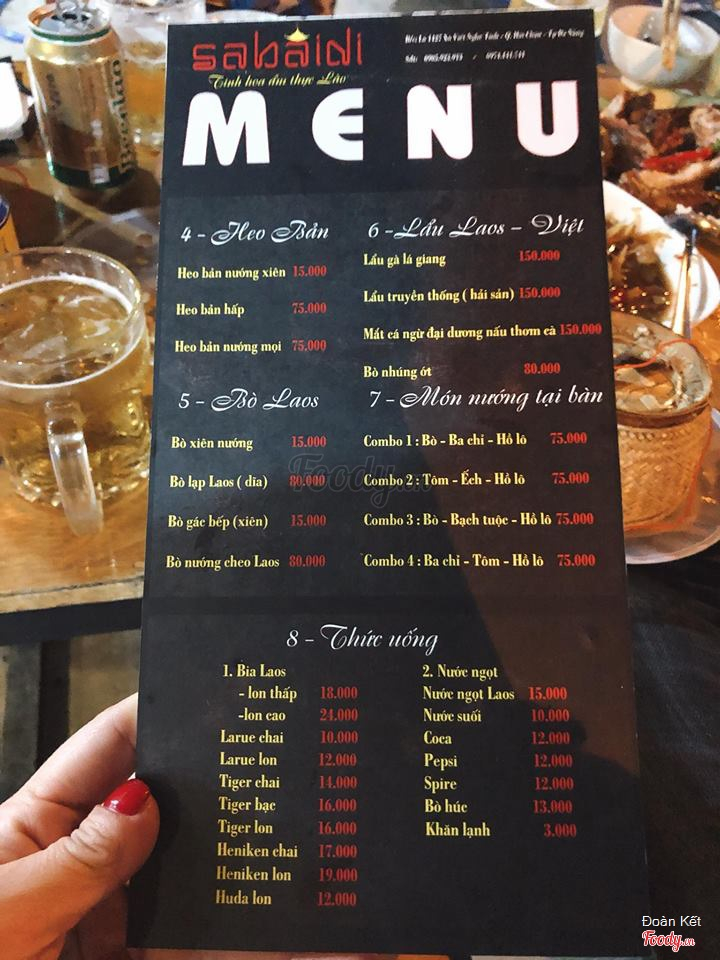 sabaidi
Tinh hoa ẩm thực Lào
MENU
4 - Heo Bản
Heo bản nướng xiên 15.000
Heo bản hấp 75.000
Heo bản nướng mọi 75.000
5 - Bò Laos
Bò xiên nướng 15.000
Bò lạp Laos ( dĩa) 80.000
Bò gác bếp (xiên) 15.000
Bò nướng cheo Laos 80.000
6 - Lẩu Laos - Việt
Lẩu gà lá giang 150.000
Lẩu truyền thống ( hải sản) 150.000
Mắt cá ngừ đại dương nấu thơm cà 150.000
Bò nhúng ớt 80.000
7 - Món nướng tại bàn
Combo 1 : Bò - Ba chỉ - Hồ lô 75.000
Combo 2 : Tôm - Ếch - Hồ lô 75.000
Combo 3 : Bò - Bạch tuộc - Hồ lô 75.000
Combo 4 : Ba chỉ - Tôm - Hồ lô 75.000
8 - Thức uống
1. Bia Laos
- lon thấp 18.000
-lon cao 24.000
Larue chai 10.000
Larue lon 12.000
Tiger chai 14.000
Tiger bạc 16.000
Tiger lon 16.000
Heniken chai 17.000
Heniken lon 19.000
Huda lon 12.000
2. Nước ngọt
Nước ngọt Laos 15.000
Nước suối 10.000
Coca 12.000
Pepsi 12.000
Spire 12.000
Bò húc 13.000
Khăn lạnh 3.000
Beerlao
Foody.vn
Đoàn Kết
Foody.vn